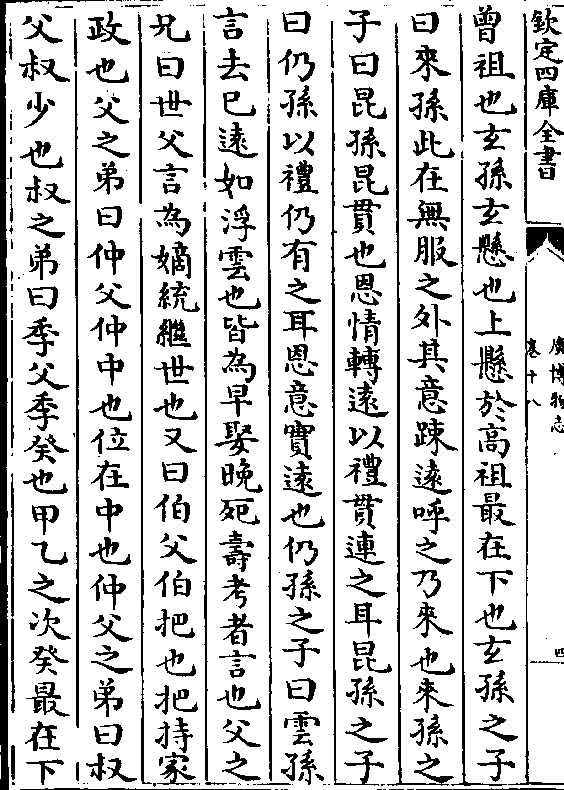 欽定四庫全書
廣博物志
卷十八
四
曾祖也玄孫玄懸也上懸於高祖最在下也玄孫之子
曰來孫此在無服之外其意踈遠呼之乃來也來孫之
子曰昆孫昆貫也恩情轉遠以禮貫連之耳昆孫之子
曰仍孫以禮仍有之耳恩意實遠也仍孫之子曰雲孫
言去已遠如浮雲也皆為早娶晚死壽考者言也父之
兄曰世父言為嫡統繼世也又曰伯父伯把也把持家
政也父之弟曰仲父仲中也位在中也仲父之弟曰叔
父叔少也叔之弟曰季父季癸也甲乙之次癸最在下